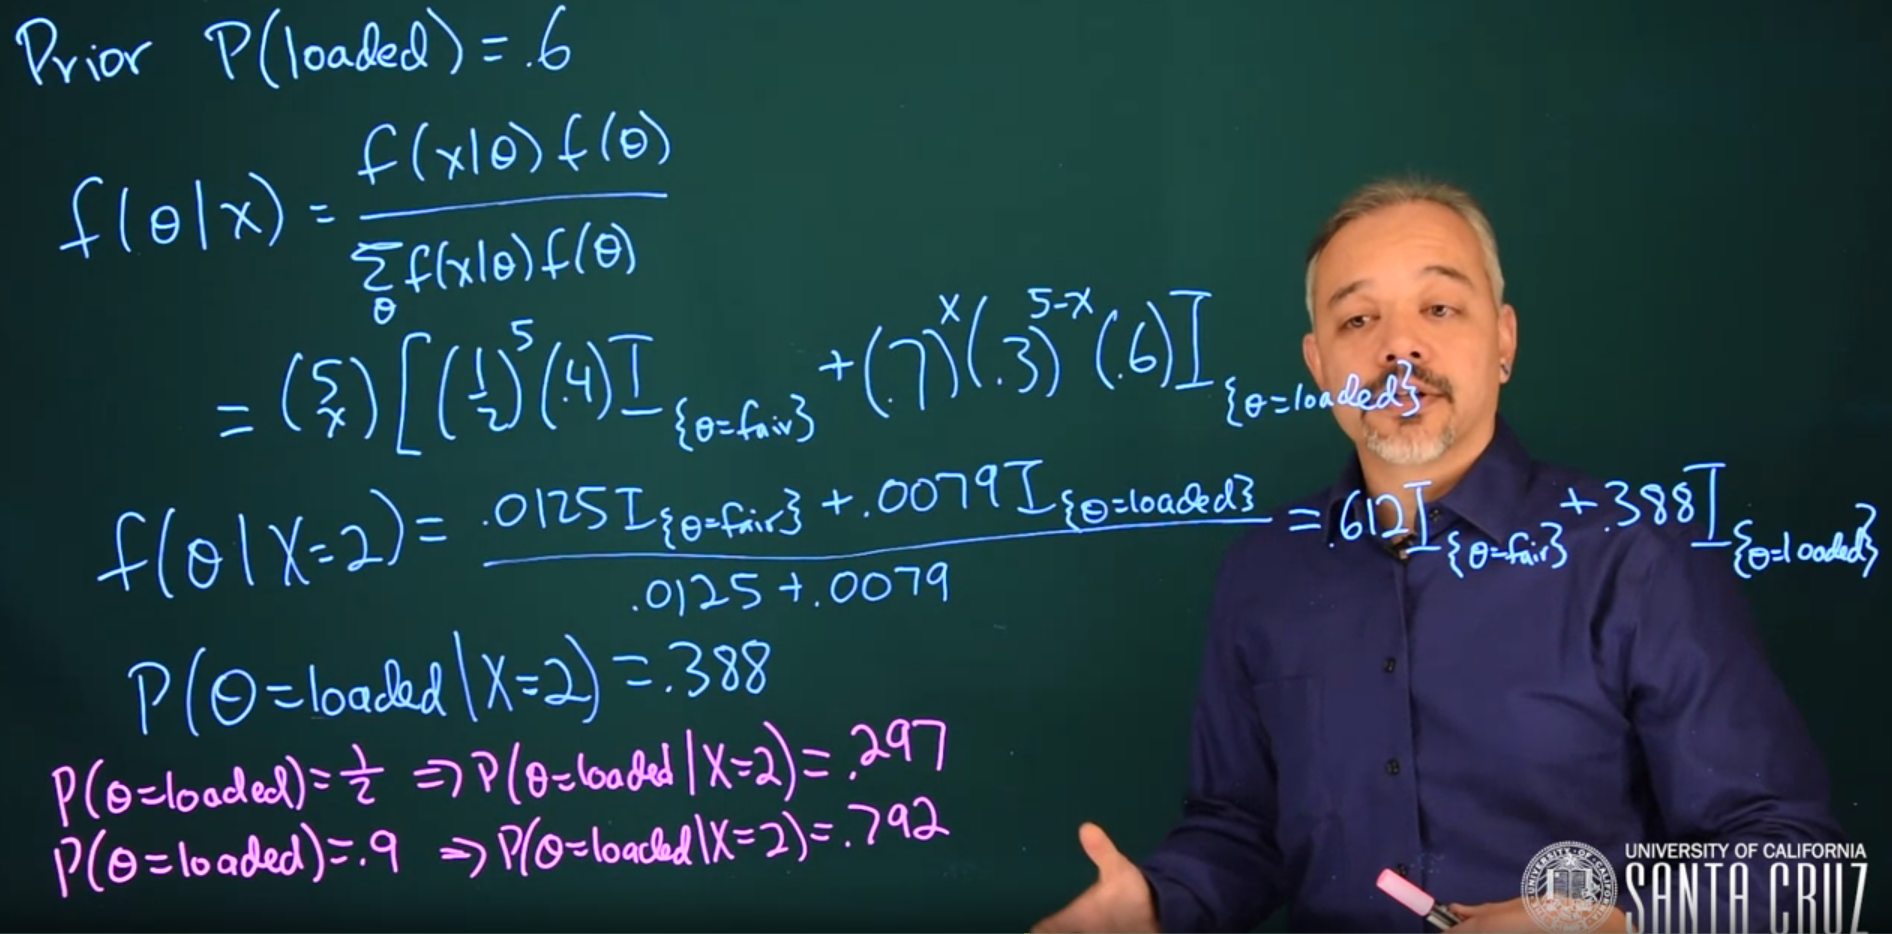 Prior P(loaded) = .6
f(θ|x) = f(x|θ) f(θ) / Σ_θ f(x|θ) f(θ)
= (5 x) [ (1/2)^5 (.4) I_{θ=fair} + (.7)^x (.3)^{5-x} (.6) I_{θ=loaded}
f(θ|X=2) = .0125 I_{θ=fair} + .0079 I_{θ=loaded} / .0125 + .0079 = .612 I_{θ=fair} + .388 I_{θ=loaded}
P(θ=loaded|X=2) = .388
P(θ=loaded) = 1/2 ⇒ P(θ=loaded|X=2) = .297
P(θ=loaded) = .9 ⇒ P(θ=loaded|X=2) = .792
UNIVERSITY OF CALIFORNIA
SANTA CRUZ